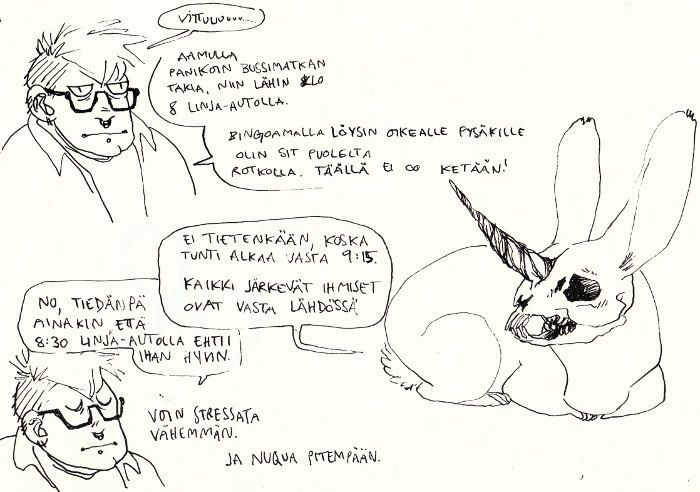 VITTULUUUU...
AAMULLA
PANIKOIN BUSSIMATKAN
TAKIA, NIIN LÄHIN KLO
8 LINJA-AUTOLLA.
BINGOAMALLA LÖYSIN OIKEALLE PYSÄKILLE
OLIN SIT PUOLELTA
ROTKOLLA. TÄÄLLÄ EI OO KETÄÄN!
EI TIETENKÄÄN, KOSKA
TUNTI ALKAA VASTA 9:15.
KAIKKI JÄRKEVÄT IHMISET
OVAT VASTA LÄHDÖSSÄ
NO, TIEDÄNPÄ
AINAKIN, ETÄ
8:30 LINJA-AUTOLLA EHTII
IHAN HYVIN.
VOIN STRESSATA
VÄHEMMÄN.
JA NUQUA PITEMPÄÄN.